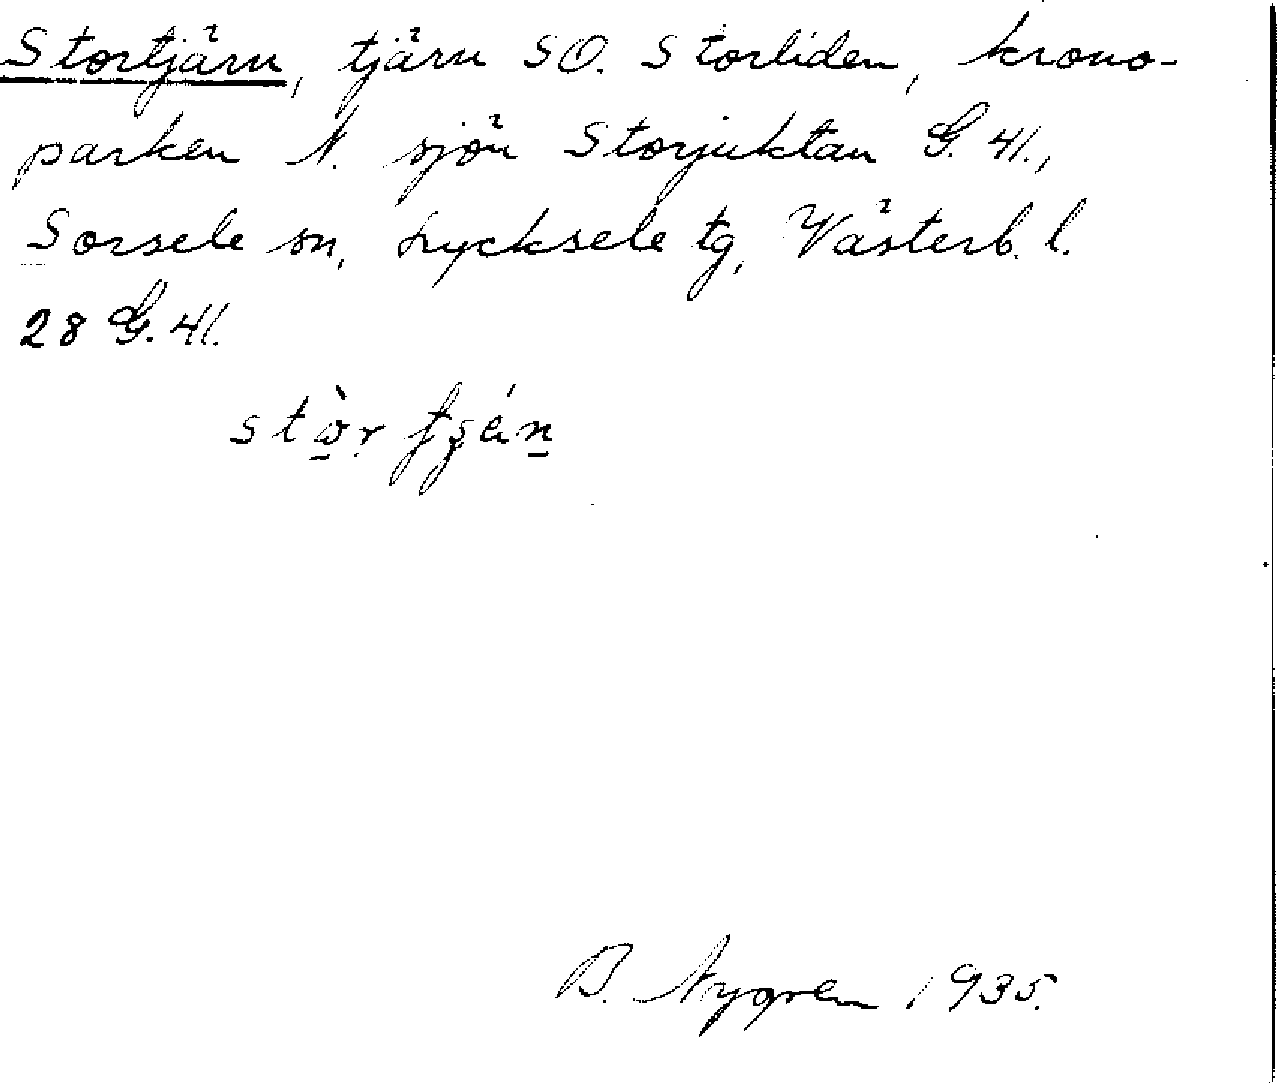 Stortjärn, tjärn SO. Storliden, krono-
parken N. sjön Storjuktan G. 41.,
Sorsele sn, Lycksele tg, Västerb. l.
28 G. 41.
B. Nygren 1935.